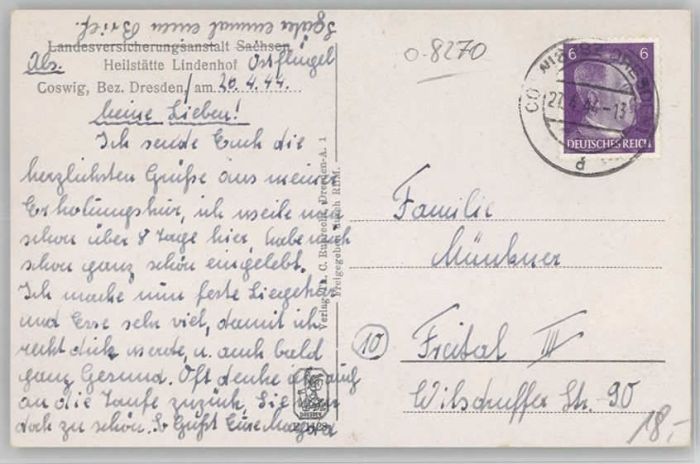 Später einmal einen Brief.
Landesversicherungsanstalt Sachsen
Abs. Heilstätte Lindenhof Ostflügel
Coswig, Bez. Dresden, am 20.4.44.
Meine Lieben!
Ich sende Euch die
herzlichsten Grüße aus meiner
Erholungskur, ich weile nun
schon über 8 Tage hier, habe mich
schon ganz schön eingelebt.
Ich mache nun feste Liegekur
und Esse sehr viel, damit ich
recht dick werde, u. auch bald
ganz Gesund. Oft denke ich auch
an die Taufe zurück. Sie war
doch zu schön. Es Grüßt Eure
Verlag
C. Ruprecht, Dresden-A. 1
Freigegeben durch RLM.
o-8270
6 6
27.4.44-13
d
DEUTSCHES REICH
Familie
Münkner
10 Freital III
Wilsdruffer Str. 90
18,-